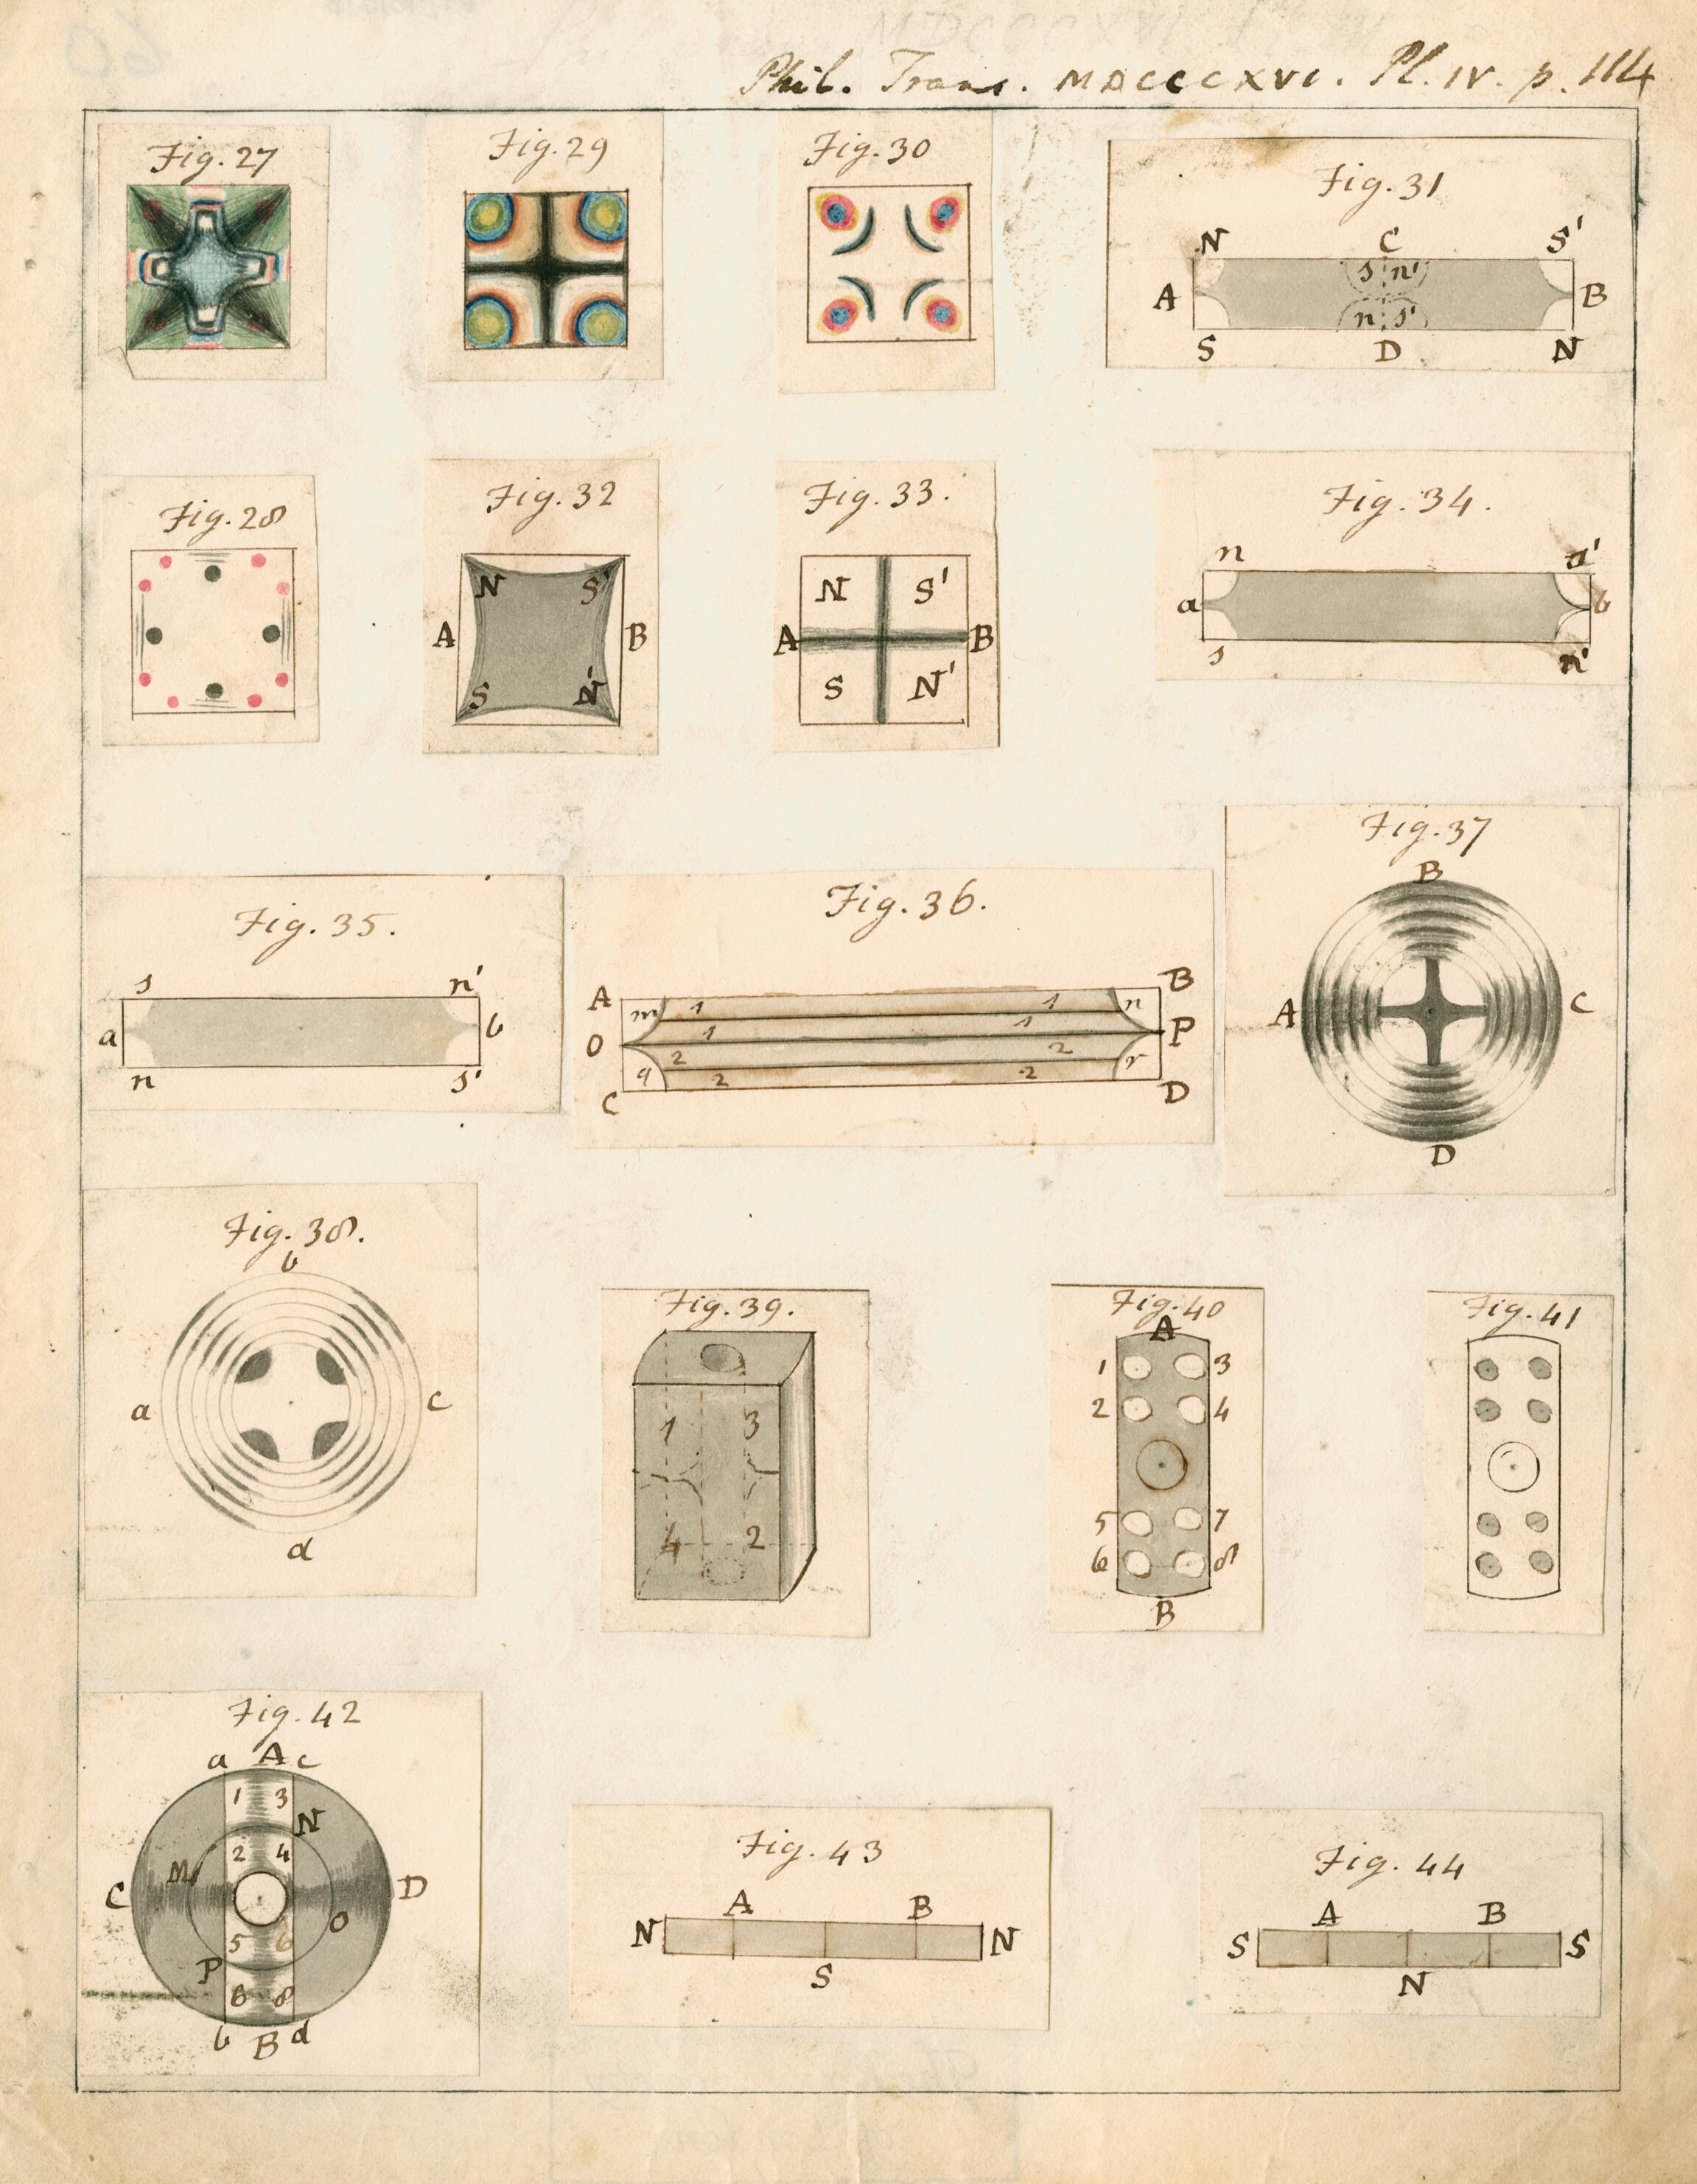 Phil. Trans. MDCCCXVI. Pl. IV. p. 114
Fig. 27
Fig. 29
Fig. 30
Fig. 31
N C S'
s n'
A B
n s'
S D N
Fig. 28
Fig. 32
N S'
A B
S N'
Fig. 33.
N S'
A B
S N'
Fig. 34.
n
a b
s n'
Fig. 35.
s n'
a b
n s'
Fig. 36.
A m 1 1 n B
O 1 1 P
2 2
C q 2 2 r D
Fig. 37
B
A C
D
Fig. 38.
b
a c
d
Fig. 39.
1 3
4 2
Fig. 40
A
1 3
2 4
5 7
6 8
B
Fig. 41
Fig. 42
a A c
1 3
N
2 4
M
C D
O
5 6
P
8
b B d
Fig. 43
A B
N N
S
Fig. 44
A B
S S
N